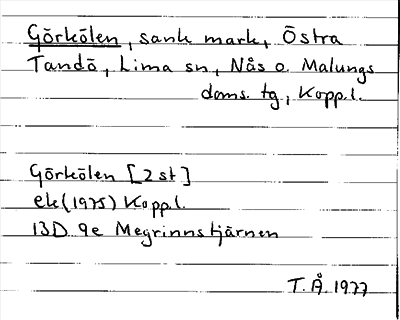 Görkölen, sank mark, Östra
Tandö, Lima sn, Nås o. Malungs
doms. tg, Kopp.l.
Görkölen [2 st]
ek (1975) Kopp.l.
13D 9e Megrinnstjärnen
T.Å. 1977